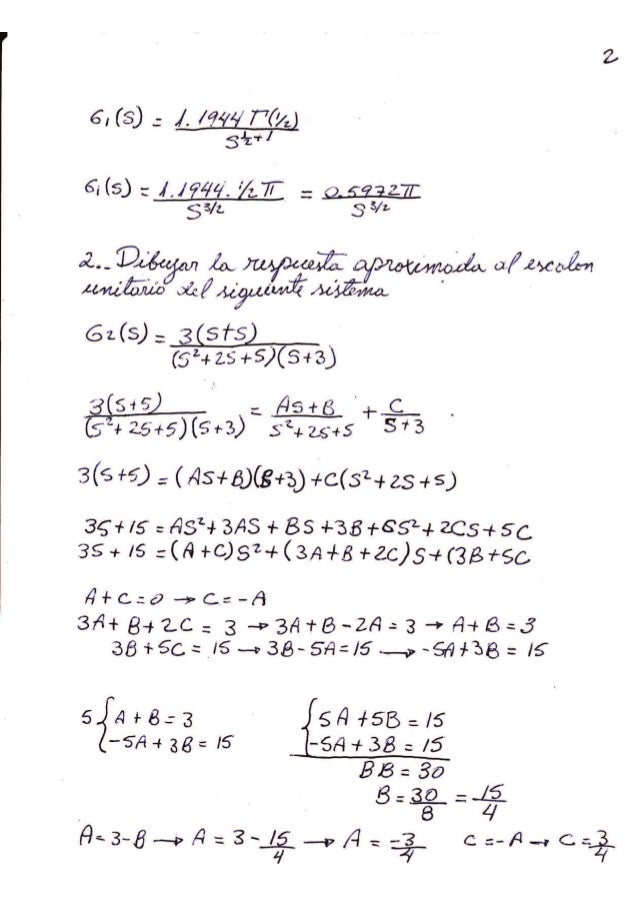 2
G₁(s) = 1.1944 Γ(1/2) / S^(1/2+1)
G₁(s) = 1.1944 . 1/2 π / S^(3/2) = 0.5972π / S^(3/2)
2.- Dibujar la respuesta aproximada al escalon
unitario del siguiente sistema
G2(s) = 3(s+s) / (S²+2S+5)(S+3)
3(S+5) / (S²+2S+5)(S+3) = AS+B / S²+2S+5 + C / S+3 .
3(S+5) = (AS+B)(S+3)+C(S²+2S+5)
3S+15 = AS²+3AS+BS+3B+CS²+2CS+5C
3S+15 = (A+C)S²+(3A+B+2C)S+(3B+5C
A+C=0 → C=-A
3A+B+2C = 3 → 3A+B-2A=3 → A+B=3
3B+5C = 15 → 3B-5A=15 → -5A+3B = 15
5 { A+B=3 { 5A+5B=15
-5A+3B=15 -5A+3B=15
8B=30
B=30/8 = 15/4
A=3-B → A=3-15/4 → A=-3/4 C=-A → C=3/4